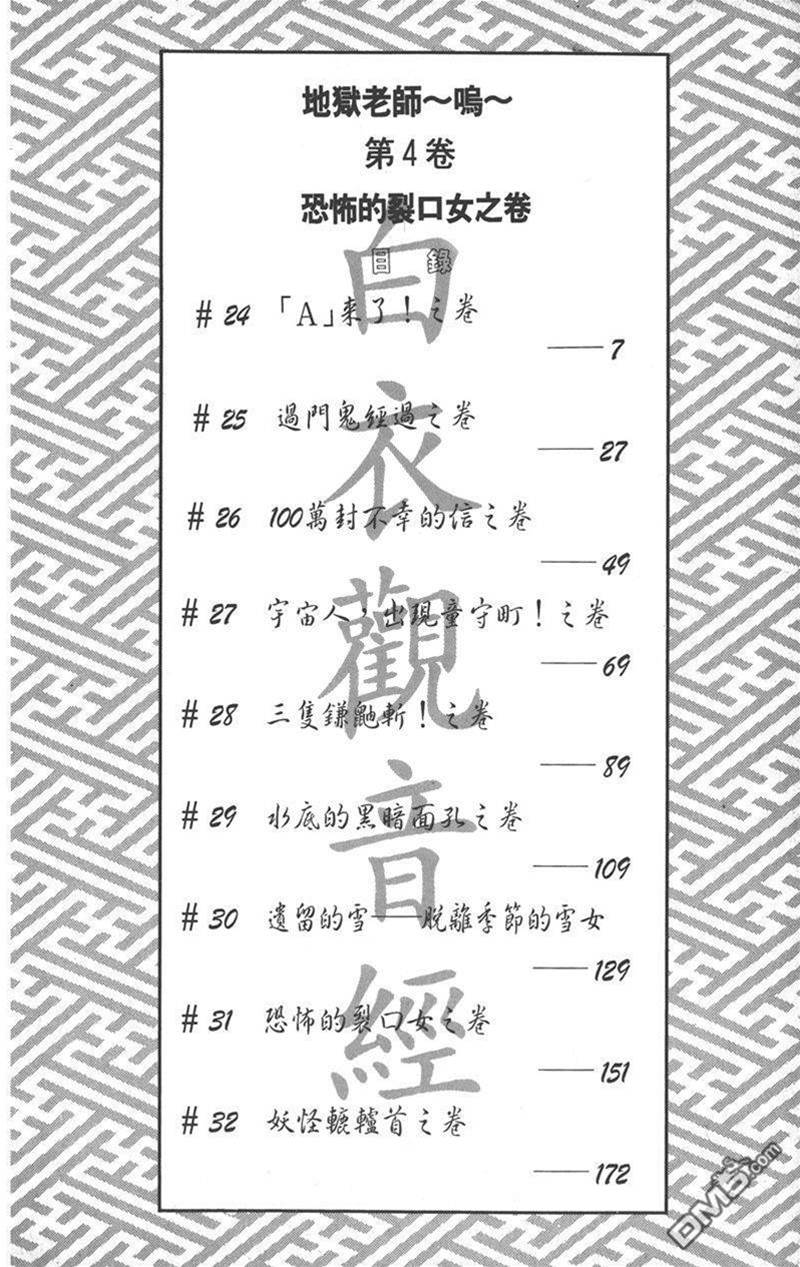 地獄老師～嗚～
第4卷
恐怖的裂口女之卷
目錄
#24 「A」來了！之卷
——7
#25 過門鬼經過之卷
——27
#26 100萬封不幸的信之卷
——49
#27 宇宙人，出現童守町！之卷
——69
#28 三隻鎌鼬斬！之卷
——89
#29 水底的黑暗面孔之卷
——109
#30 遺留的雪——脫離季節的雪女
——129
#31 恐怖的裂口女之卷
——151
#32 妖怪轆轤首之卷
——172
白衣觀音經
DM5.com